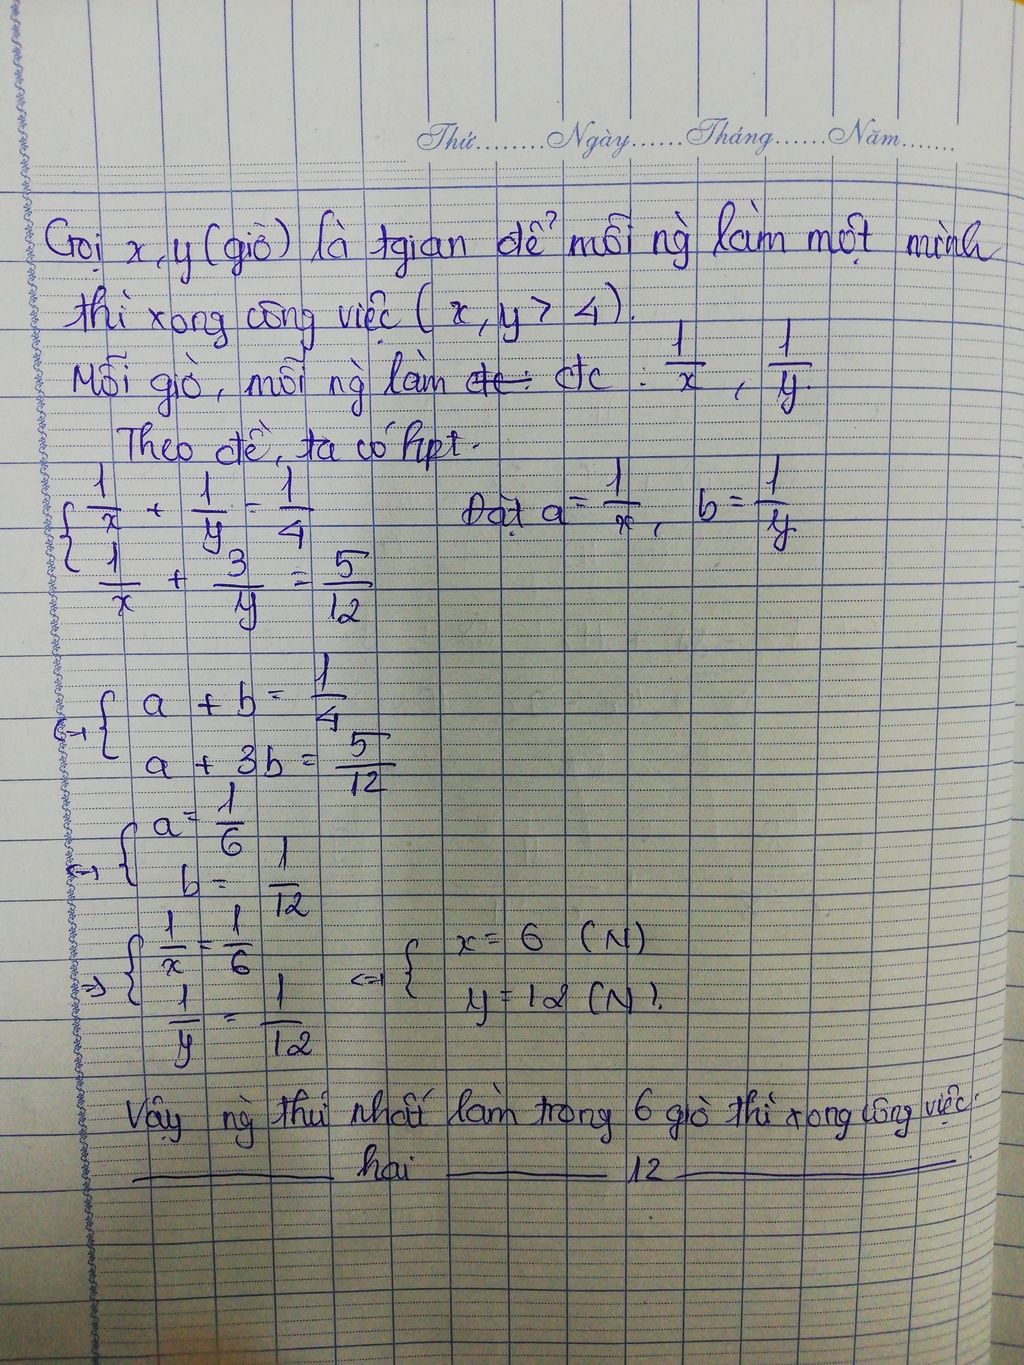 Thứ........Ngày......Tháng......Năm.......
Gọi x, y (giờ) là tgian để mỗi ng` làm một mình
thì xong công việc ( x, y > 4).
Mỗi giờ, mỗi ng` làm đc : đc : 1/x , 1/y.
Theo đề, ta có hpt.
{ 1/x + 1/y = 1/4 Đặt a = 1/x, b = 1/y
1/x + 3/y = 5/12
<-> { a + b = 1/4
a + 3b = 5/12
<-> { a = 1/6
b = 1/12
=> { 1/x = 1/6 <=> { x = 6 (N)
1/y = 1/12 y = 12 (N).
Vậy ng` thứ nhất làm trong 6 giờ thì xong công việc.
——— hai ——— 12 ———